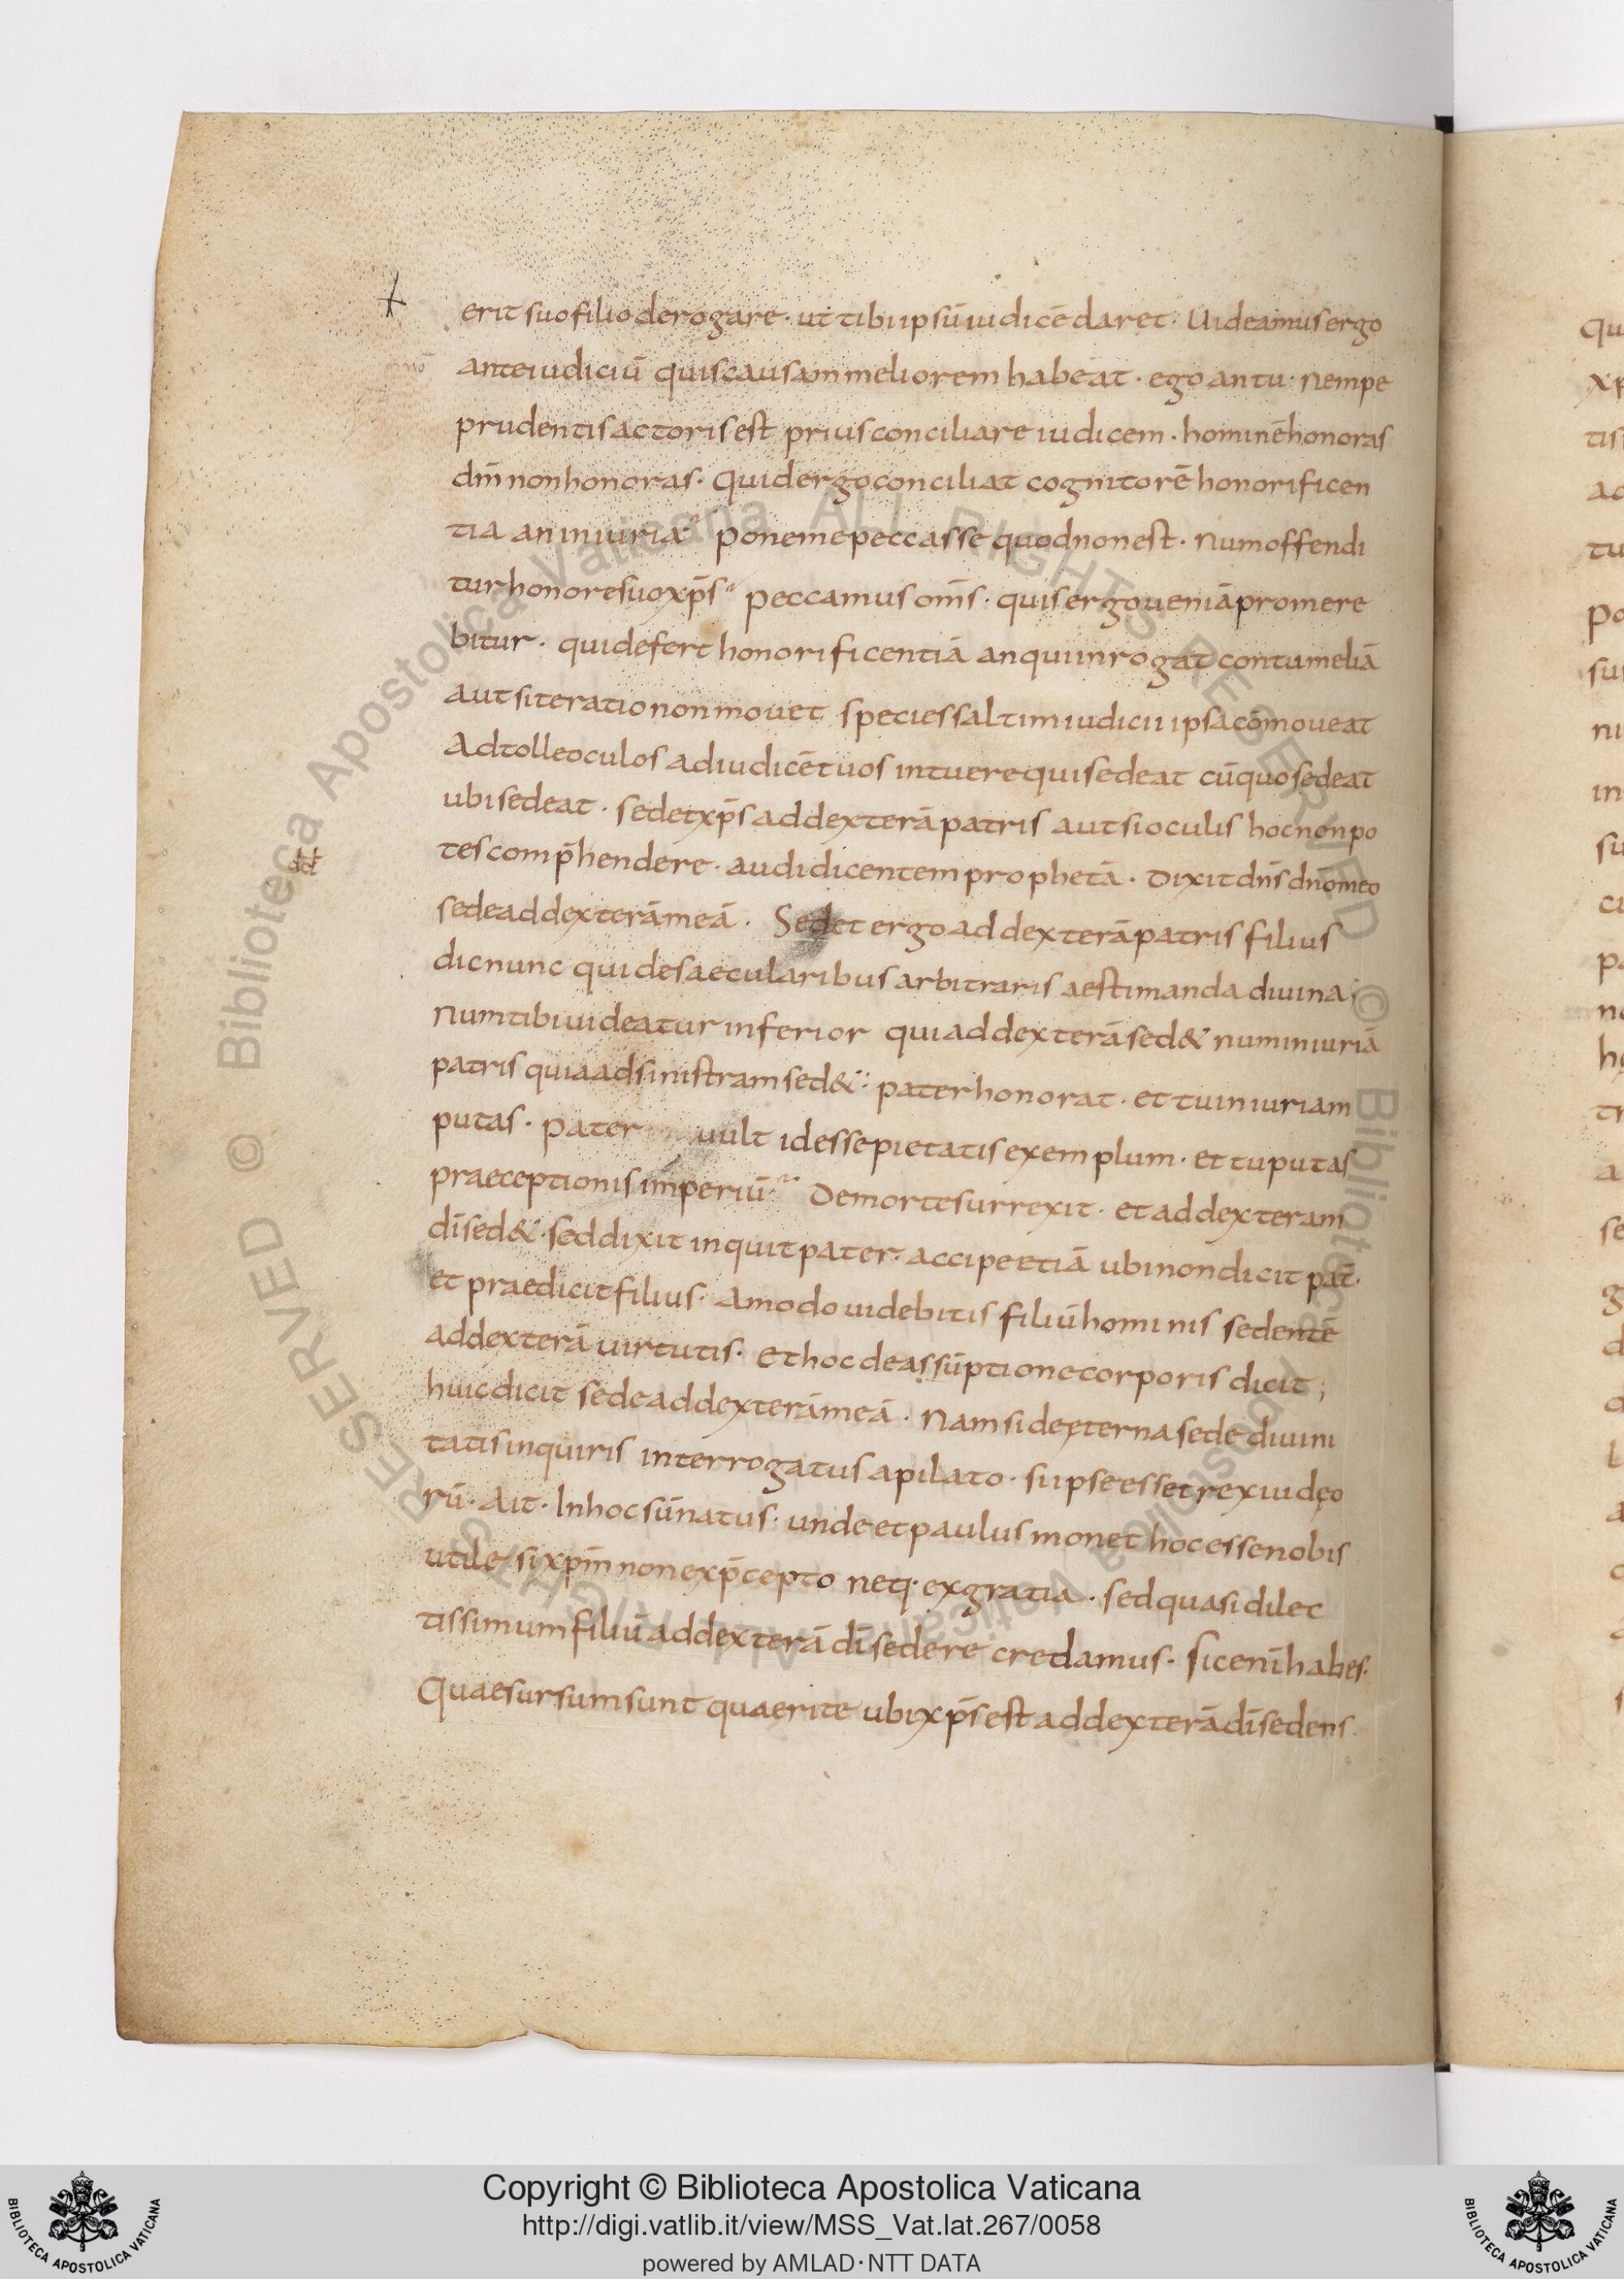 erit suo filio derogare · ut tibi ipsū iudicē daret · Uideamus ergo
ante iudiciū quis causam meliorem habeat · ego an tu · Nempe
prudentis actoris est prius conciliare iudicem · hominē honoras
dm̄ non honoras · Quid ergo conciliat cognitorē honorificen
tia an iniuria · Pone me peccasse quod non est · Num offendi
tur honore suo xp̄s · Peccamus om̄s · quis ergo ueniā promere
bitur · qui defert honorificentiā an qui inrogat contumeliā
aut si te ratio non mouet species saltim iudicii ipsa cōmoueat
Adtolle oculos ad iudicē tuos intuere qui sedeat cū quo sedeat
ubi sedeat · sedet xp̄s ad dexterā patris aut si oculis hoc non po
tes comp̄hendere · audi dicentem prophetā · Dixit dn̄s dn̄o meo
sede ad dexterā meā · Sedet ergo ad dexterā patris filius
dic nunc qui de saecularibus arbitraris aestimanda diuina ;
Num tibi uideatur inferior qui ad dexterā sed& num iniuriā
patris quia ad sinistram sed& · pater honorat · et tu iniuriam
putas · Pater uult id esse pietatis exemplum · et tu putas
praeceptionis imperiū · De morte surrexit · et ad dexteram
dī sed& · sed dixit inquit pater · accipe etiā ubi non dicit pat̄ ·
et praedicit filius · Amodo uidebitis filiū hominis sedentē
ad dexterā uirtutis · Et hoc de assūptione corporis dicit ;
huic dicit sede ad dexterā meā · Nam si de externa sede diuini
tatis inquiris interrogatus a pilato · si ipse esset rex iudęo
rū · Ait · In hoc sū natus · unde et paulus monet hoc esse nobis
utile si xpm̄ non ex p̄cepto neq· ex gratia · sed quasi dilec
tissimum filiū ad dexterā dī sedere credamus · Sic enī habes ·
Quae sursum sunt quaerite ubi xp̄s est ad dexterā dī sedens ·
Copyright © Biblioteca Apostolica Vaticana
http://digi.vatlib.it/view/MSS_Vat.lat.267/0058
powered by AMLAD·NTT DATA
BIBLIOTECA APOSTOLICA VATICANA
BIBLIOTECA APOSTOLICA VATICANA
© Biblioteca Apostolica Vaticana ALL RIGHTS RESERVED
© Biblioteca Apostolica Vaticana ALL RIGHTS RESERVED